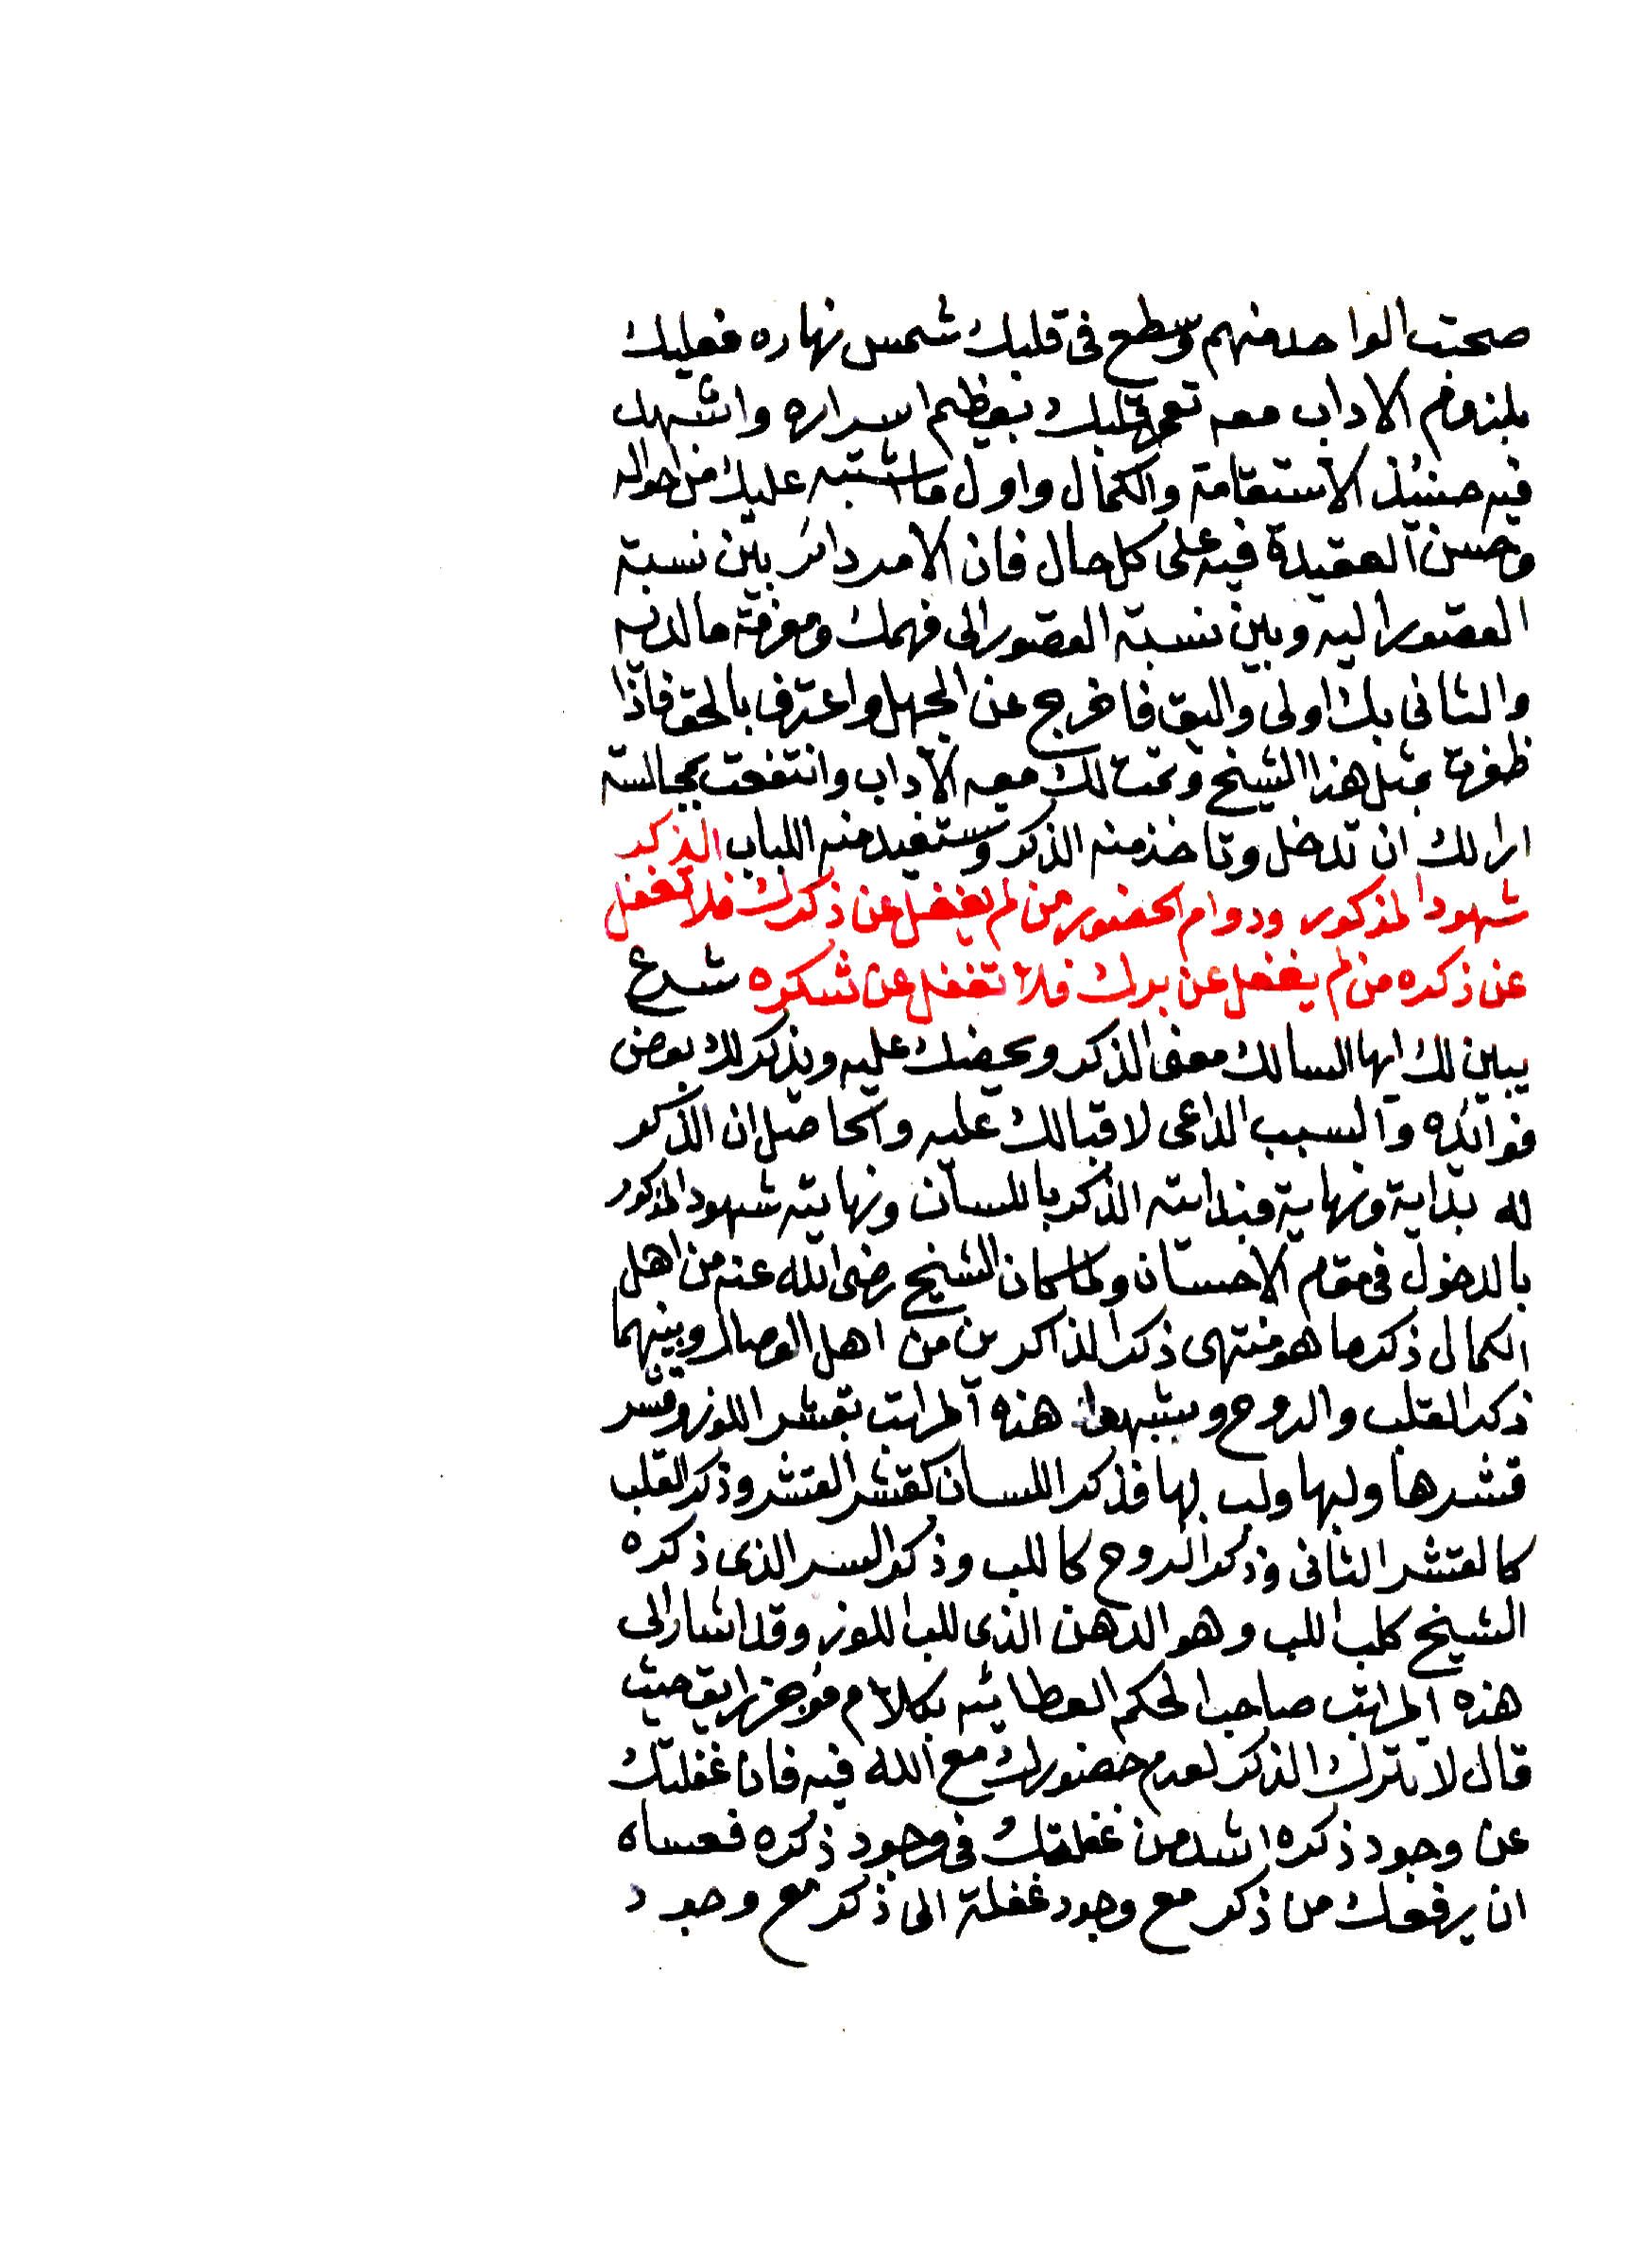 صحبت الواحد منهم وسطع فى قلبك شمس نهاره فعليك
بلزوم الاداب معه تعمر قلبك بتعظيم اسراره واشهد
فيه حينئذ الاستقامة والكمال واول ما اشتبه عليك من احواله
وحسن العقيدة فيه على كل حال فان الامر دائر بين نسبة
القصور اليه وبين نسبة القصور الى فهمك ومعرفة ما لديه
والثانى بك اولى واليق فاخرج عن الجهل واعترف بالحق فاذا
ظفرت بمثل هذا الشيخ وتمت لك معه الآداب وانتفعت بمجالسته
ان لك ان تدخل وتاخذ منه الذكر وتستفيد منه اللباب الذكر
شهود المذكور ودوام الحضور من لم يغفل عن ذكرك فلا تغفل
عن ذكره من لم يغفل عن برك فلا تغفل عن شكره شرع
يبين لك ايها السالك معنى الذكر ويحضك عليه ويذكر لك بعض
فوائده والسبب الداعى لاقبالك عليه والحاصل ان الذكر
له بداية ونهاية فبدايته الذكر باللسان ونهايته شهود المذكور
بالدخول فى مقام الاحسان ولما كان الشيخ رضى الله عنه من اهل
الكمال ذكر ما هو منتهى ذكر الذاكرين من اهل الوصال وبينهما
ذكر القلب والروح ويشبهوا هذه المراتب بقشر اللوز وقشر
قشرها ولبها ولب لبها فذكر اللسان كقشر القشر وذكر القلب
كالقشر الثانى وذكر الروح كاللب وذكر السر الذى ذكره
الشيخ كلب اللب وهو الدهن الذى للب اللوز وقد اشار الى
هذه المراتب صاحب الحكم العطائيه بكلام موجز رايق حيث
قال لا تترك الذكر لعدم حضورك مع الله فيه فان غفلتك
عن وجود ذكره اشد من غفلتك فى وجود ذكره فعساه
ان يرفعك من ذكر مع وجود غفلة الى ذكر مع وجود